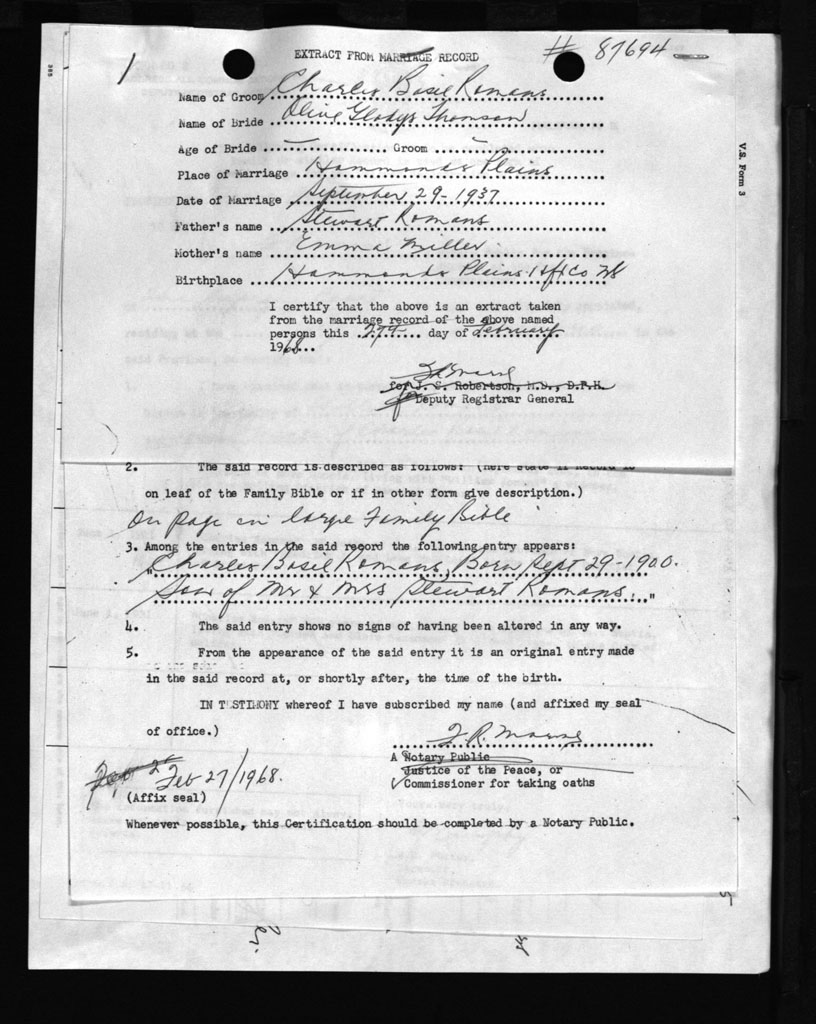 EXTRACT FROM MARRIAGE RECORD # 87694
1
Name of Groom Charles Basil Romans
Name of Bride Olive Gladys Thomson
Age of Bride — Groom —
Place of Marriage Hammonds Plains
Date of Marriage September 29 - 1937
Father's name Stewart Romans
Mother's name Emma Miller
Birthplace Hammonds Plains Hfx Co NS
I certify that the above is an extract taken
from the marriage record of the above named
persons this 27th day of February
1968
for J. S. Robertson, M.D., D.P.H.
for Deputy Registrar General
V.S. Form 3
2. The said record is described as follows: (here state if Record is
on leaf of the Family Bible or if in other form give description.)
On page in large Family Bible
3. Among the entries in the said record the following entry appears:
"Charles Basil Romans, Born Sept 29 - 1900.
Son of Mr & Mrs Stewart Romans."
4. The said entry shows no signs of having been altered in any way.
5. From the appearance of the said entry it is an original entry made
in the said record at, or shortly after, the time of the birth.
IN TESTIMONY whereof I have subscribed my name (and affixed my seal
of office.)
A Notary Public
Justice of the Peace, or
Commissioner for taking oaths
Feb 27/1968.
(Affix seal)
Whenever possible, this Certification should be completed by a Notary Public.